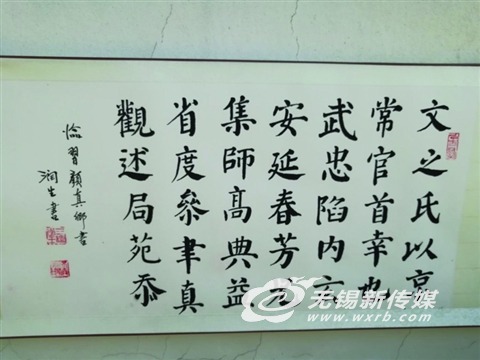 文之氏以
常官首幸也
武忠陷内六
安延春芳
集師高典益
省度參聿真
觀述局苑忝
临習顔真卿書
润生書
无锡新传媒
www.wxrb.com